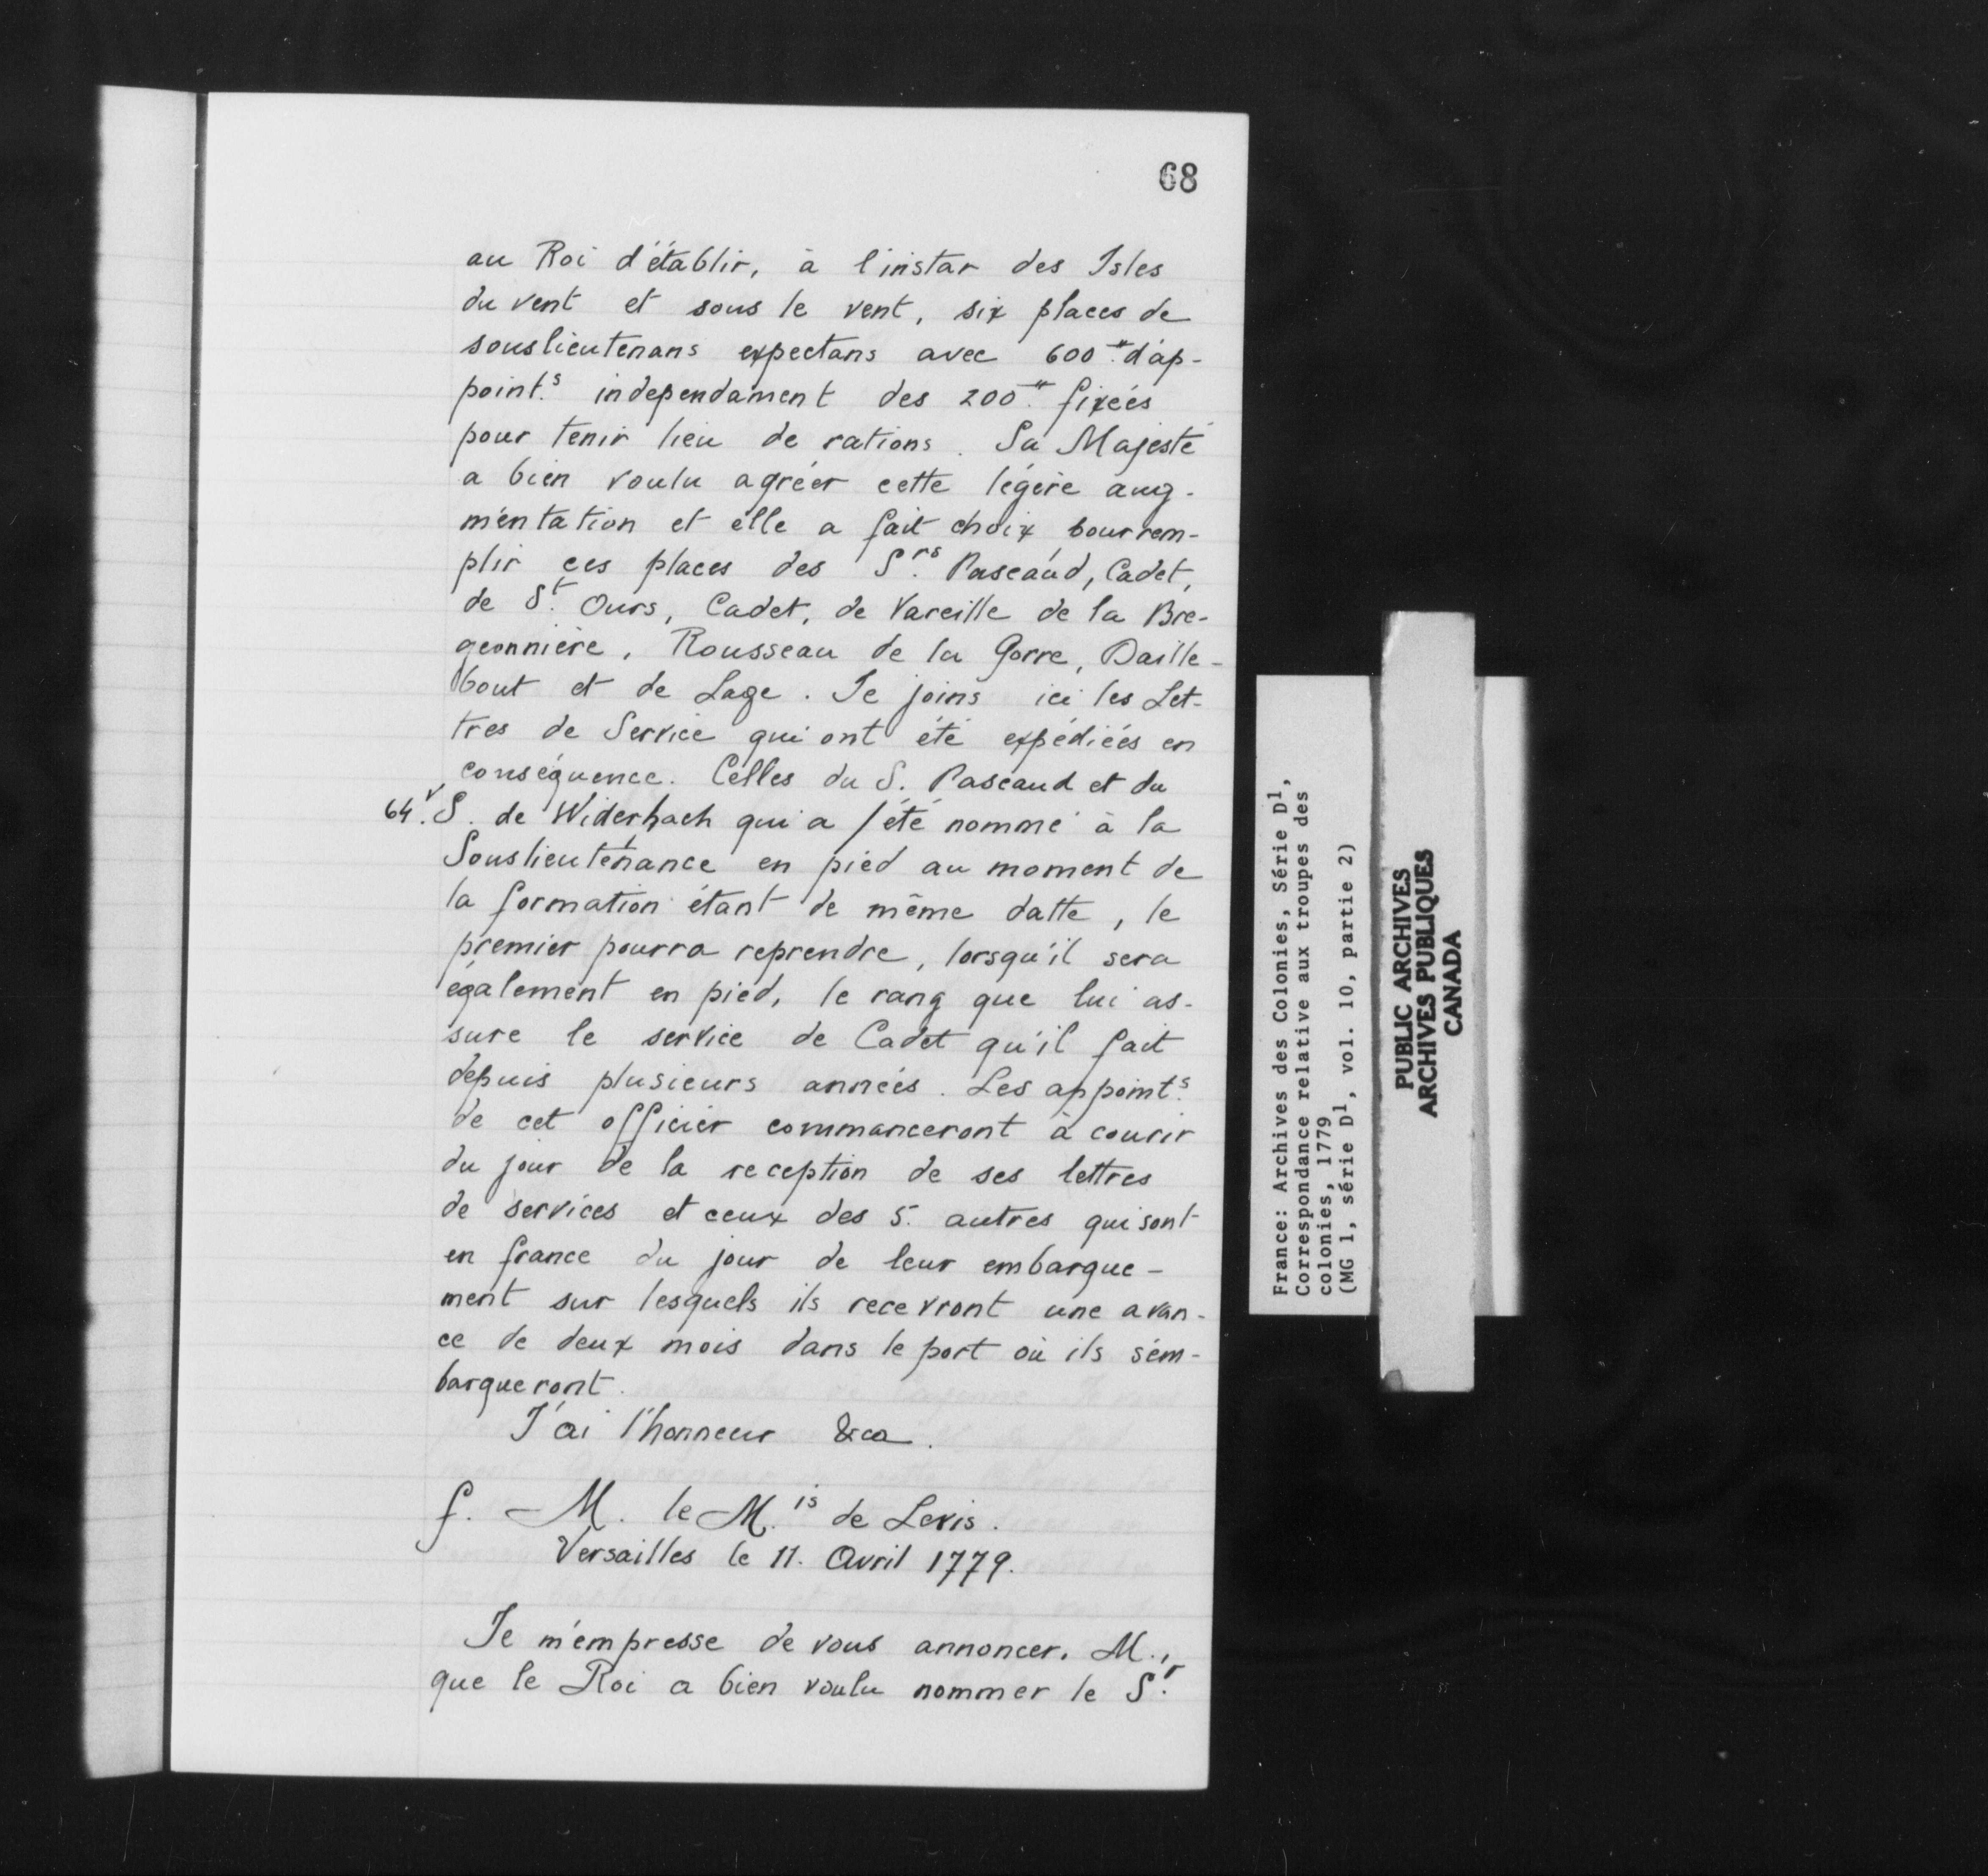 68
au Roi d'établir, à l'instar des Isles
du vent et sous le vent, six places de
souslieutenans expectans avec 600.ᵗᵗ d'ap-
point.s independament des 200.ᵗᵗ fixées
pour tenir lieu de rations. Sa Majesté
a bien voulu agréer cette légère aug-
mentation et elle a fait choix, pour rem-
plir ces places des S.rs Pascaud, Cadet,
de S.t Ours, Cadet, de Vareille de la Bre-
geonnière, Rousseau de la Gorre, Daille-
bout et de Lage. Je joins ici les Let-
tres de Service qui ont été expédiées en
conséquence. Celles du S. Pascaud et du
64.v S. de Widerhach qui a / été nommé à la
Souslieutenance en pied au moment de
la formation étant de même datte, le
premier pourra reprendre, lorsqu'il sera
également en pied, le rang que lui as-
sure le service de Cadet qu'il fait
depuis plusieurs années. Les appoint.s
de cet officier commanceront à courir
du jour de la reception de ses lettres
de services et ceux des 5. autres qui sont
en france du jour de leur embarque-
ment sur lesquels ils recevront une avan-
ce de deux mois dans le port où ils s'em-
barqueront.
J'ai l'honneur &ca.
f. M. le M.is de Levis.
Versailles le 11. Avril 1779.
Je m'empresse de vous annoncer, M.,
que le Roi a bien voulu nommer le S.r
France: Archives des Colonies, Série D1,
Correspondance relative aux troupes des
colonies, 1779
(MG 1, série D1, vol. 10, partie 2)
PUBLIC ARCHIVES
ARCHIVES PUBLIQUES
CANADA